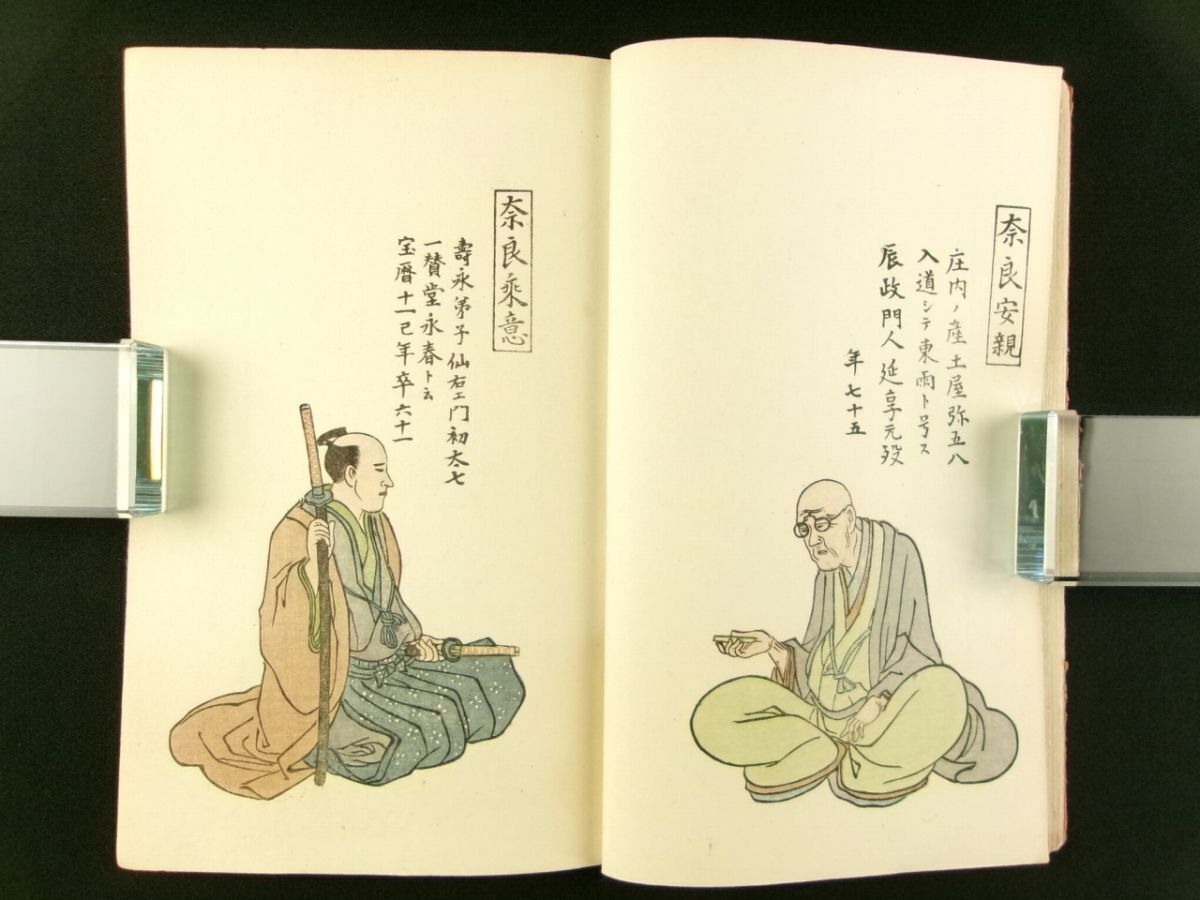 奈良安親
庄内ノ産土屋弥五八
入道シテ東雨ト号ス
辰政門人延享元歿
年七十五
奈良乘意
壽永弟子仙右エ門初太七
一賛堂永春ト云
宝暦十一己年卒六十一